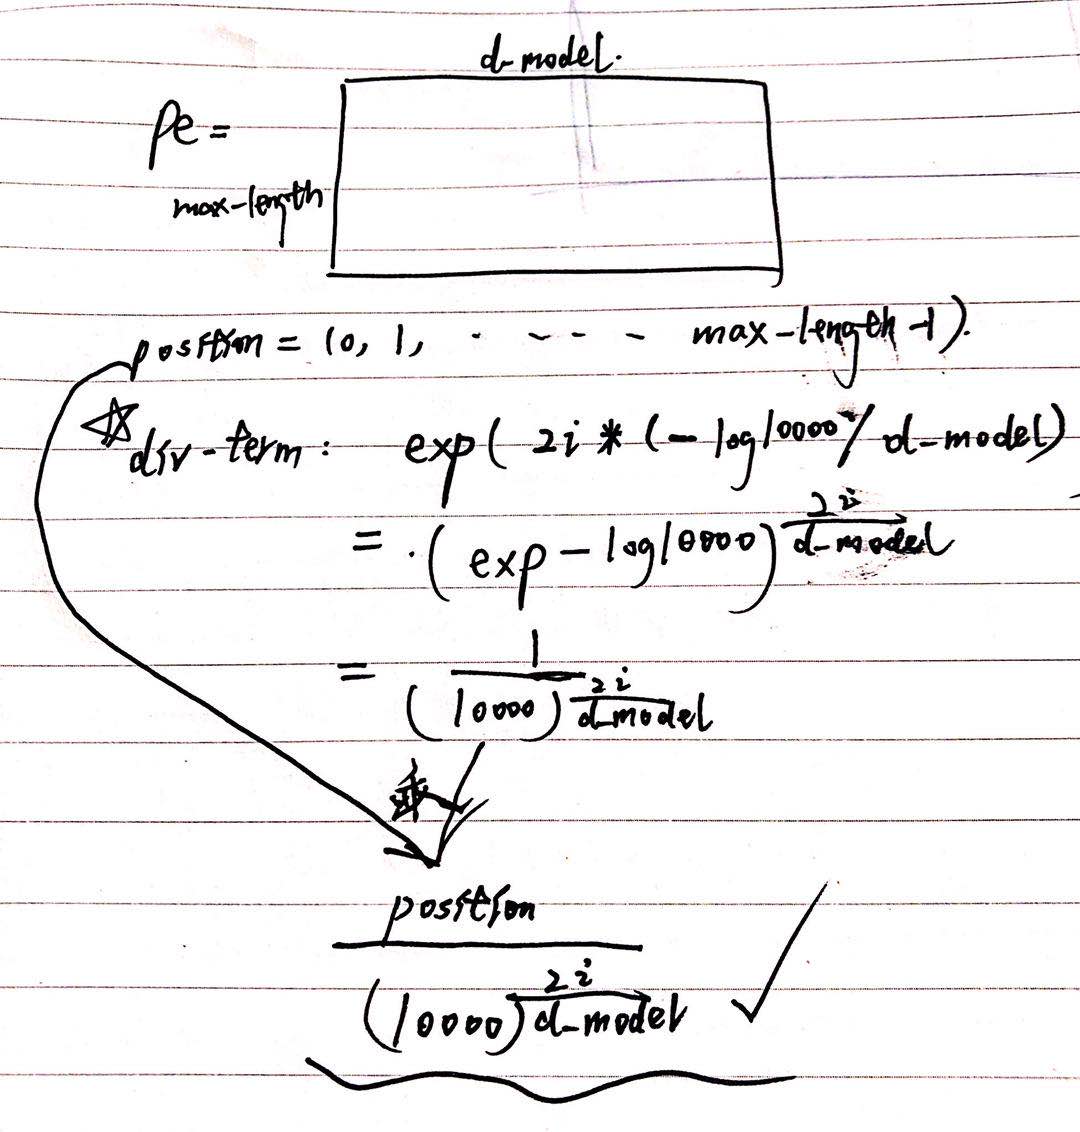 d-model.
pe =
max-length
position = (0, 1, · - - - - max-length-1).
☆ div-term : exp( 2i * (-log10000 / d-model)
= ·(exp-log10000)^(2i/d-model)
= 1/(10000)^(2i/d-model)
乘
position
(10000)^(2i/d-model) ✓